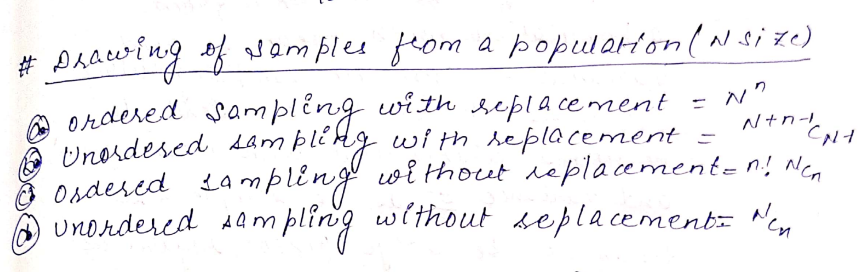 # Drawing of samples from a population (N size)
ⓐ ordered sampling with replacement = Nⁿ
ⓑ Unordered sampling with replacement = ᴺ⁺ⁿ⁻¹C_N-1
ⓒ Ordered sampling without replacement = n! ᴺCₙ
ⓓ Unordered sampling without replacement = ᴺCₙ